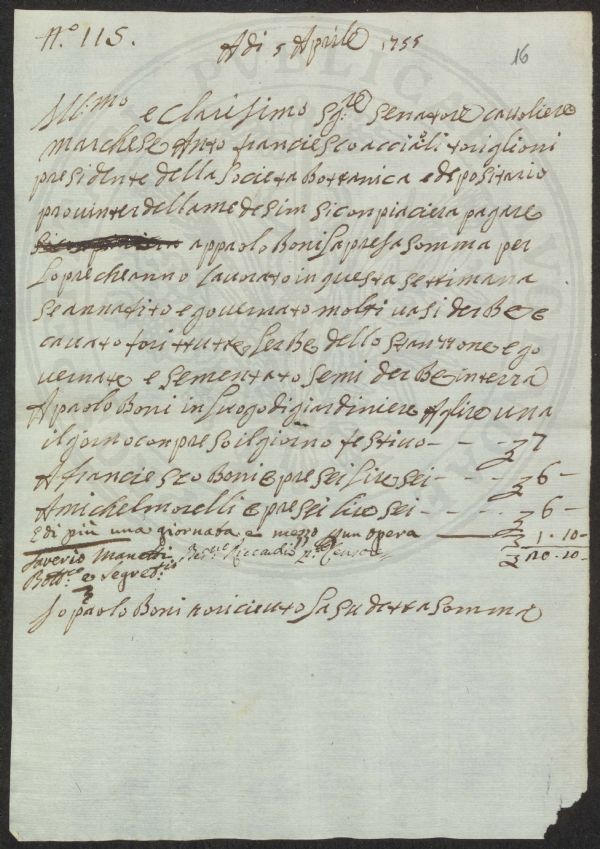 N.o 115.
Adi 5 Aprile 1755
16
Ill.mo e Clarisimo Sg.re Senatore cavoliere
marchese Anto franciesco acciaioli toriglioni
presidente della Societa Bottanica e depositario
pro uinter della medesim si conpiacierà pagare
appaolo Boni la presa somma per
Lopre che anno lauorato in questa settimana
Se annafito e gouernato molti uasi der Be e
cauato fori ttutte lerBe dello stanzone e go
uernate e sementato semi der Be in terra
A paolo Boni in luogo di giardiniere A lire una
il giorno conpreso il giorno festiuo - - - - 7
A franciesco Boni e pre sei lire sei - - - 6 -
A michel morelli e pre sei lire sei - - - 6 -
E di più una giornata e mezzo d'un opera 1 - 10 -
Saverio Manetti 20 - 10 -
Bott.co e Segret.rio
Io paolo Boni o riceuto la su detta somma